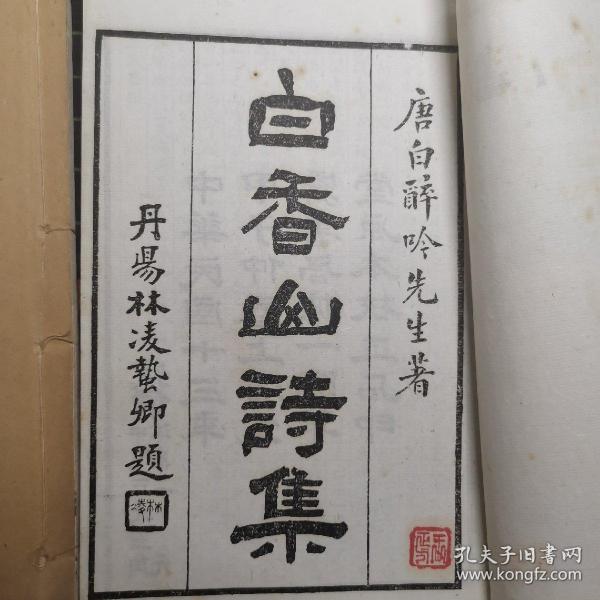 唐白醉吟先生著
白香山詩集
丹陽林凌蟄卿題
孔夫子旧书网
www.kongfz.com